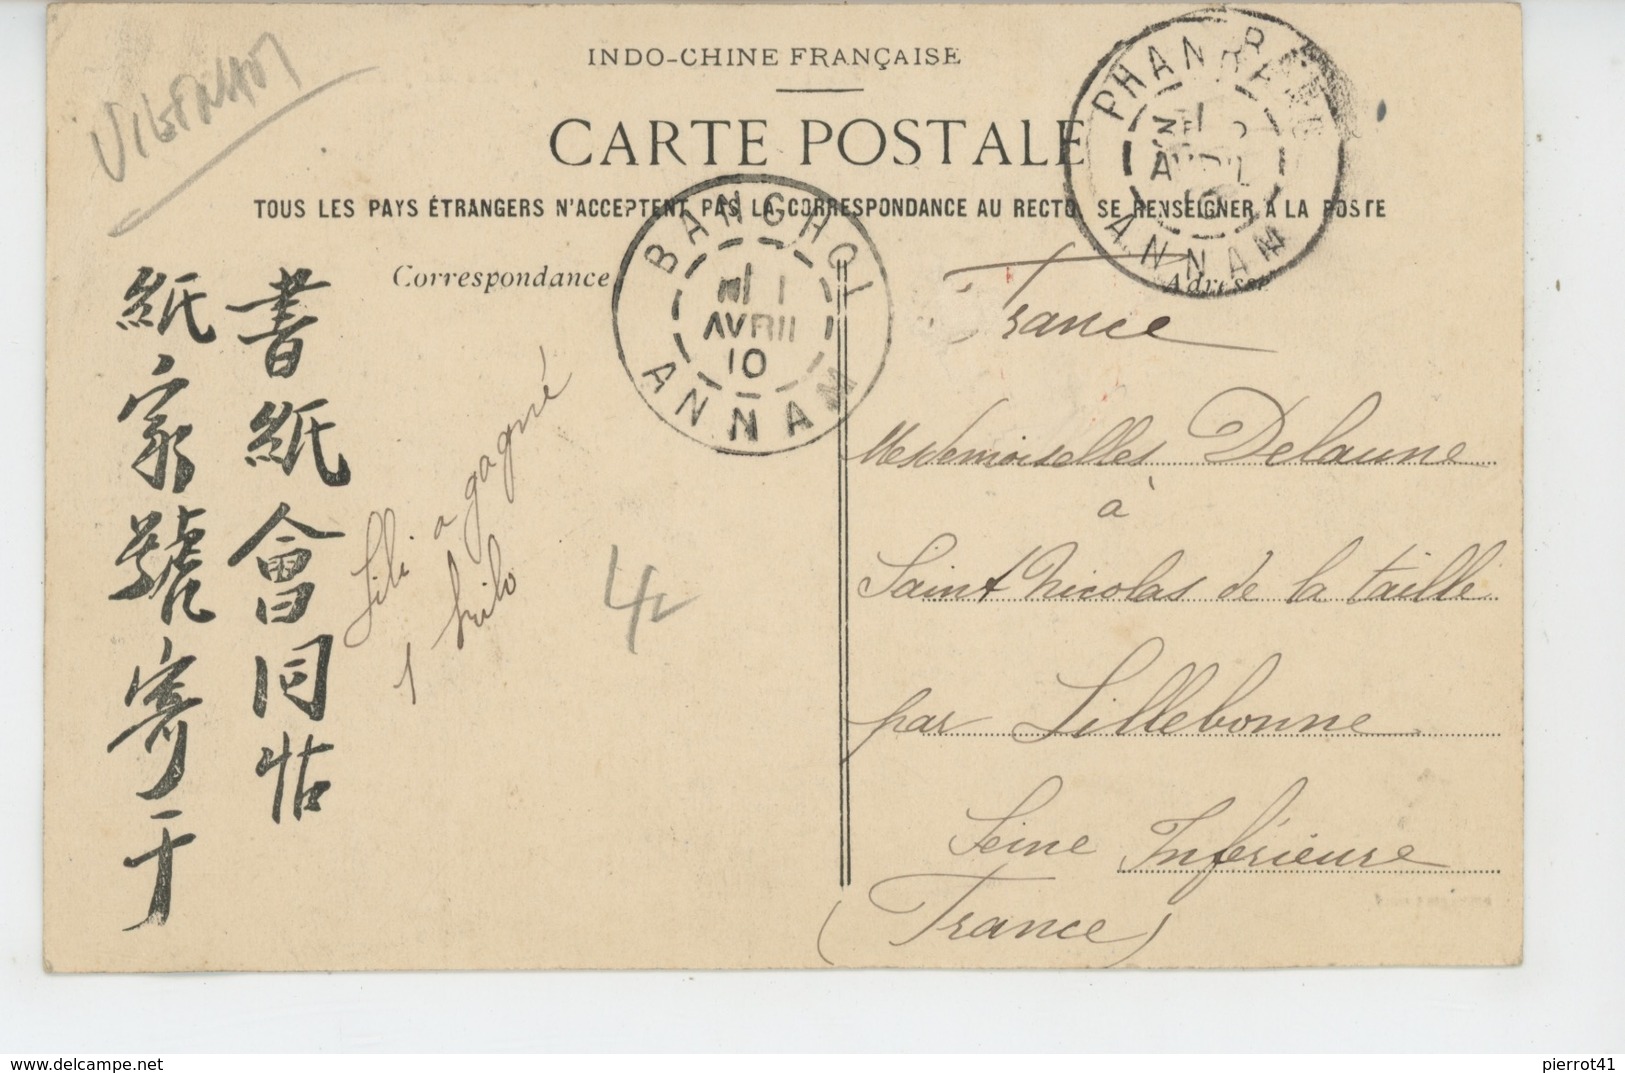 VIETNAM
INDO-CHINE FRANÇAISE
CARTE POSTALE
TOUS LES PAYS ÉTRANGERS N'ACCEPTENT PAS LA CORRESPONDANCE AU RECTO, SE RENSEIGNER A LA POSTE
PHANRANG
AVRIL
ANNAM
BANGHOI
1
AVRIL
10
ANNAM
Correspondance
Adresse
書紙會同帖
紙家號寄于
Lili a gagné
1 kilo
France
Mesdemoiselles Delaune
à
Saint Nicolas de la taille
par Lillebonne
Seine Inférieure
(France)
www.delcampe.net
pierrot41